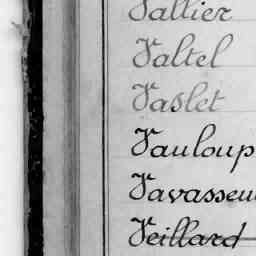 Vallier
Valtel
Vaslet
Vauloup
Vavasseu
Veillard